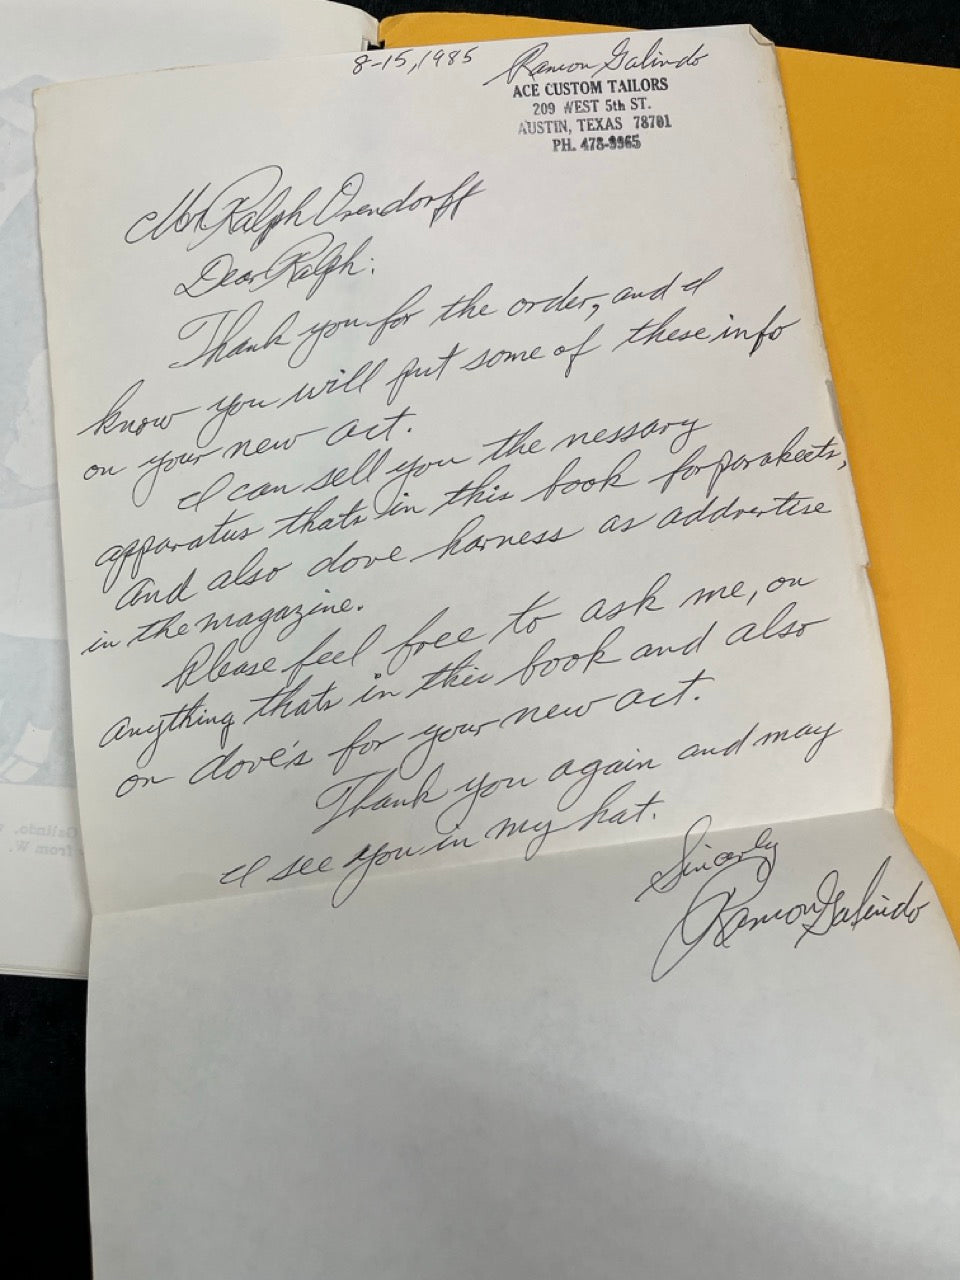 8-15, 1985
Ramon Galindo
ACE CUSTOM TAILORS
209 WEST 5th ST.
AUSTIN, TEXAS 78701
PH. 478-9965
Mr Ralph Orendorff
Dear Ralph:
Thank you for the order, and I
know you will put some of these info
on your new act.
I can sell you the nessary
apparatus thats in this book for parakeets,
and also dove harness as addvertise
in the magazine.
Please feel free to ask me, on
anything thats in this book and also
on dove's for your new act.
Thank you again and may
I see you in my hat.
Sincerly
Ramon Galindo
Galindo,
from W.